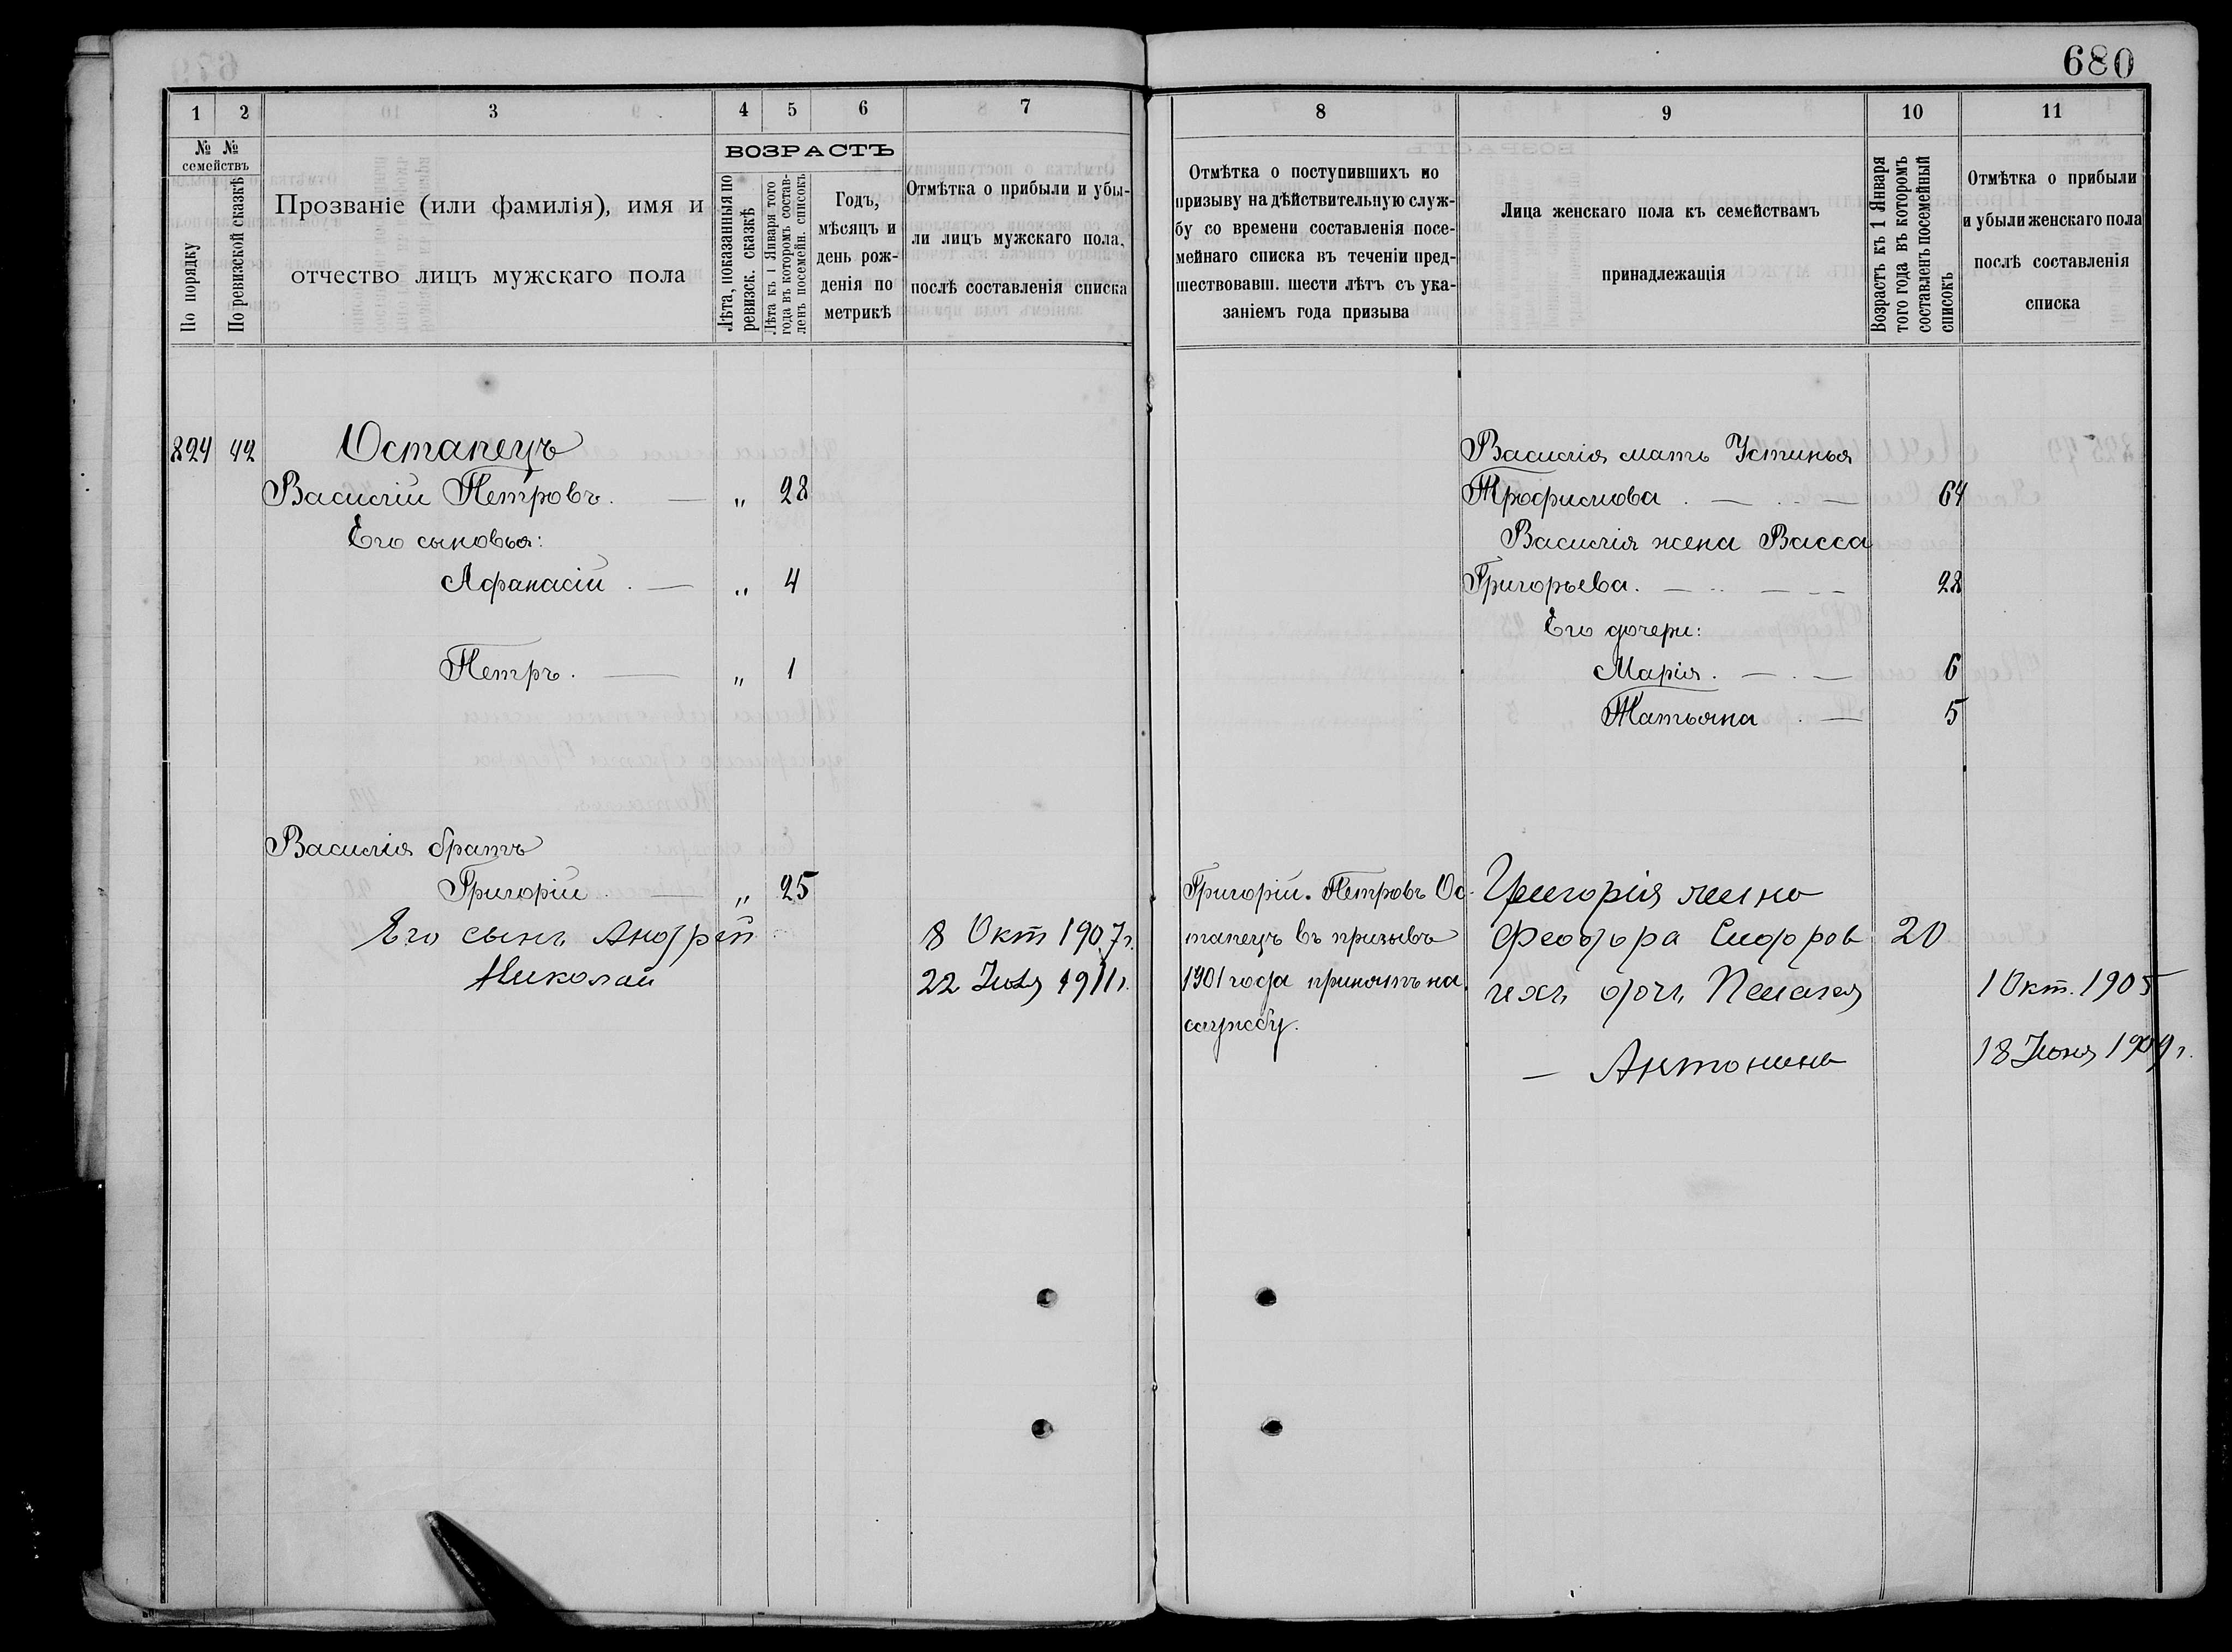 680
1 2 3 4 5 6 7
№ № семействъ
По порядку
По ревизской сказкѣ
Прозваніе (или фамилія), имя и
отчество лицъ мужскаго пола
ВОЗРАСТЪ
Лѣта, показанныя по
ревизск. сказкѣ
Лѣта къ 1 Января того
года въ которомъ состав-
ленъ посемейн. списокъ
Годъ,
мѣсяцъ и
день рож-
денія по
метрикѣ
Отмѣтка о прибыли и убы-
ли лицъ мужскаго пола,
послѣ составленія списка
824 42 Остапецъ
Василій Петровъ. — „ 28
Его сыновья:
Афанасій . — „ 4
Петръ. — „ 1
Василія братъ
Григорій . — „ 25
Его сынъ Андрей 8 Окт 1907 г.
Николай 22 Іюля 1911 г.
8 9 10 11
Отмѣтка о поступившихъ по
призыву на дѣйствительную служ-
бу со времени составленія посе-
мейнаго списка въ теченіи пред-
шествовавш. шести лѣтъ съ ука-
заніемъ года призыва
Лица женскаго пола къ семействамъ
принадлежащія
Возрастъ къ 1 Января
того года въ которомъ
составленъ посемейный
списокъ
Отмѣтка о прибыли
и убыли женскаго пола
послѣ составленія
списка
Василія мать Устинья
Трофимова . — . — 64
Василія жена Васса
Григорьева. — .. — — 28
Его дочери:
Марія. — . — 6
Татьяна . — 5
Григорій. Петровъ Ос-
тапецъ въ призывъ
1901 года принятъ на
службу.
Григорія жена
Феодора Сидоров 20
ихъ доч. Пелагея 1 Окт. 1905
— Антонина 18 Іюня 1909 г.